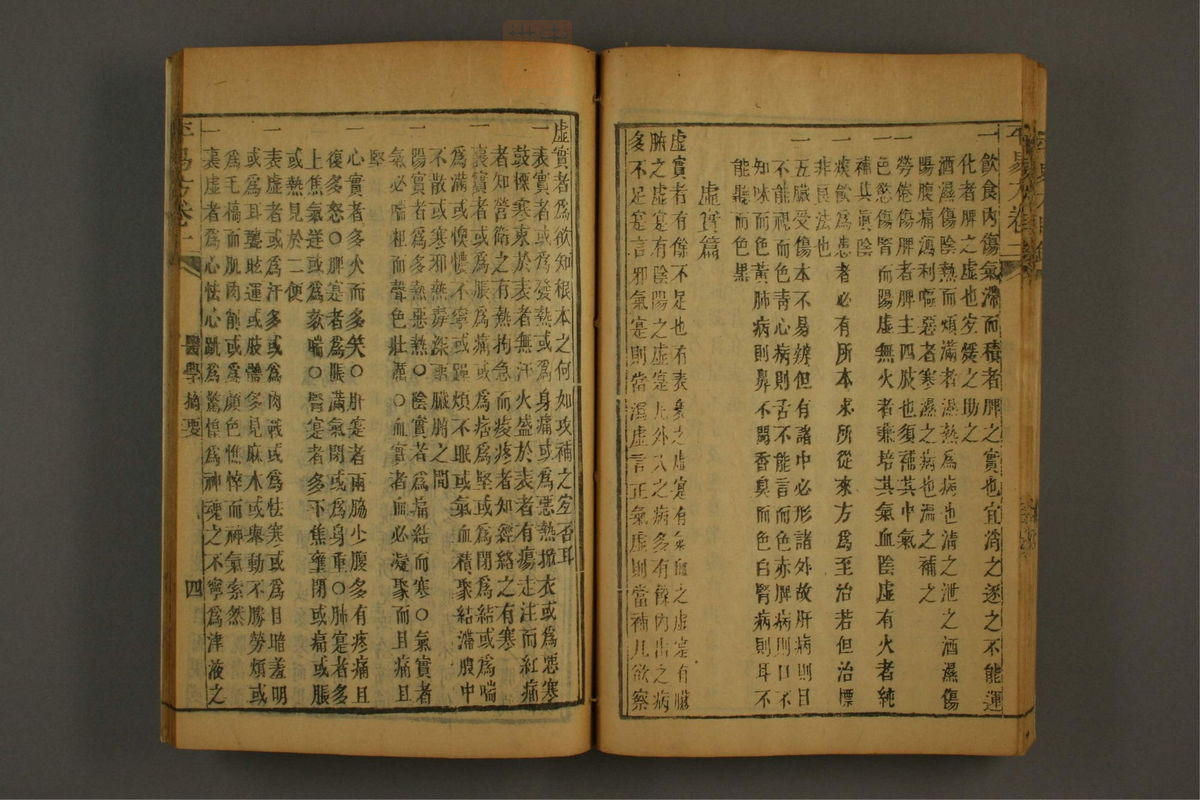 一飲食內傷氣滯而積者脾之實也宜消之逐之不能運
化者脾之虛也宜煖之助之
酒濕傷陰熱而煩滿者濕熱為病也清之泄之酒濕傷
陽腹痛瀉利嘔惡者寒濕之病也溫之補之
一勞倦傷脾者脾主四肢也須補其中氣
一色慾傷腎而陽虛無火者兼培其氣血陰虛有火者純
補其真陰
一痰飲為患者必有所本求所從來方為至治若但治標
非良法也
一五臟受傷本不易辨但有諸中必形諸外故肝病則目
不能視而色青心病則舌不能言而色赤脾病則口不
知味而色黃肺病則鼻不聞香臭而色白腎病則耳不
能聽而色黑
虛實篇
虛實者有餘不足也有表裏之虛寔有氣血之虛寔有臟
腑之虛寔有陰陽之虛寔凡外入之病多有餘內出之病
多不足寔言邪氣寔則當瀉虛言正氣虛則當補凡欲察
虛實者為欲知根本之何如攻補之宜否耳
一表實者或為發熱或為身痛或為惡熱掀衣或為惡寒
鼓慄寒束於表者無汗火盛於表者有瘍走注而紅痛
者知營衛之有熱拘急而痠疼者知經絡之有寒
一裏實者或為脹為痛或為痞為堅或為閉為結或為喘
為滿或懊憹不寧或躁煩不眠或氣血積聚結滯腹中
不散或寒邪熱毒深畱臟腑之間
一陽實者為多熱惡熱○陰實者為痛結而寒○氣實者
氣必喘粗而聲色壯厲○血實者血必凝聚而且痛且
堅
一心實者多火而多笑○肝寔者兩脇少腹多有疼痛且
復多怒○脾寔者為脹滿氣閉或為身重○肺寔者多
上焦氣逆或為欬喘○腎寔者多下焦壅閉或痛或脹
或熱見於二便
一表虛者或為汗多或為肉戰或為怯寒或為目暗羞明
或為耳聾眩運或肢體多見麻木或舉動不勝勞煩或
為毛槁而肌肉削或為顏色憔悴而神氣索然
一裏虛者為心怯心跳為驚惶為神魂之不寧為津液之
平易方卷一
醫學摘要
四